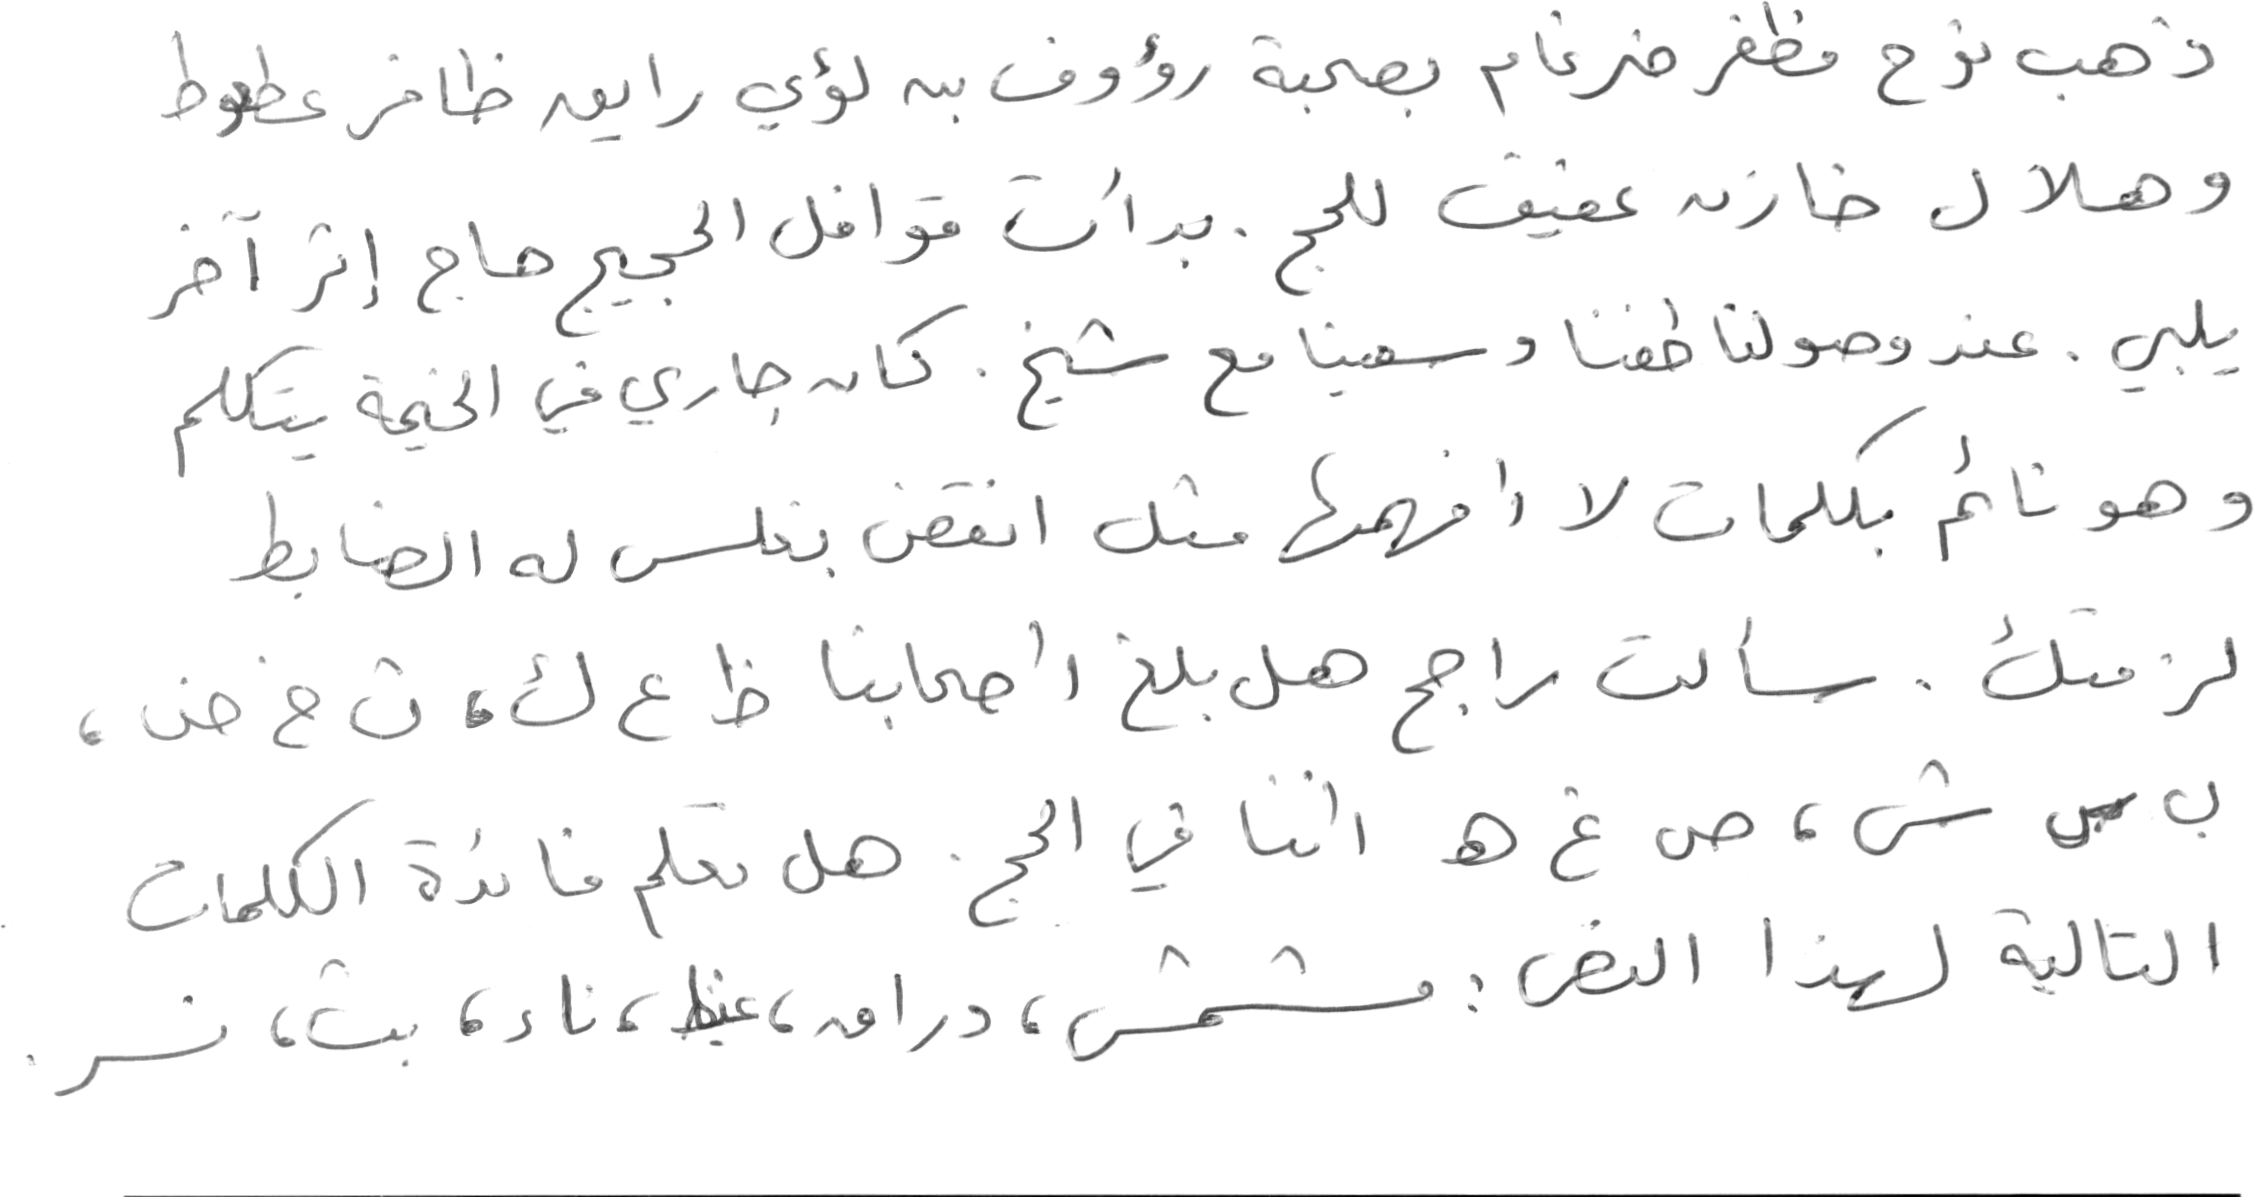 ذهب نوح مظفر ضرغام بصحبة رؤوف بن لؤي رايق ظافر عطوط
وهلال خازن عفيف للحج. بدأت قوافل الحجيج حاج إثر آخر
يلبي. عند وصولنا طفنا وسعينا مع شيخ. كان جاري في الخيمة يتكلم
وهو نائم بكلمات لا أفهمها مثل انقض بغلس له الضابط
لزمتك. سألت راجح هل بلغ أصحابنا ظ ع ك، ث خ ض،
ب س ش، ص غ ه أننا في الحج. هل تعلم فائدة الكلمات
التالية لهذا النص: مشمش، دراق، غيظ، ناء، بث، نسر.